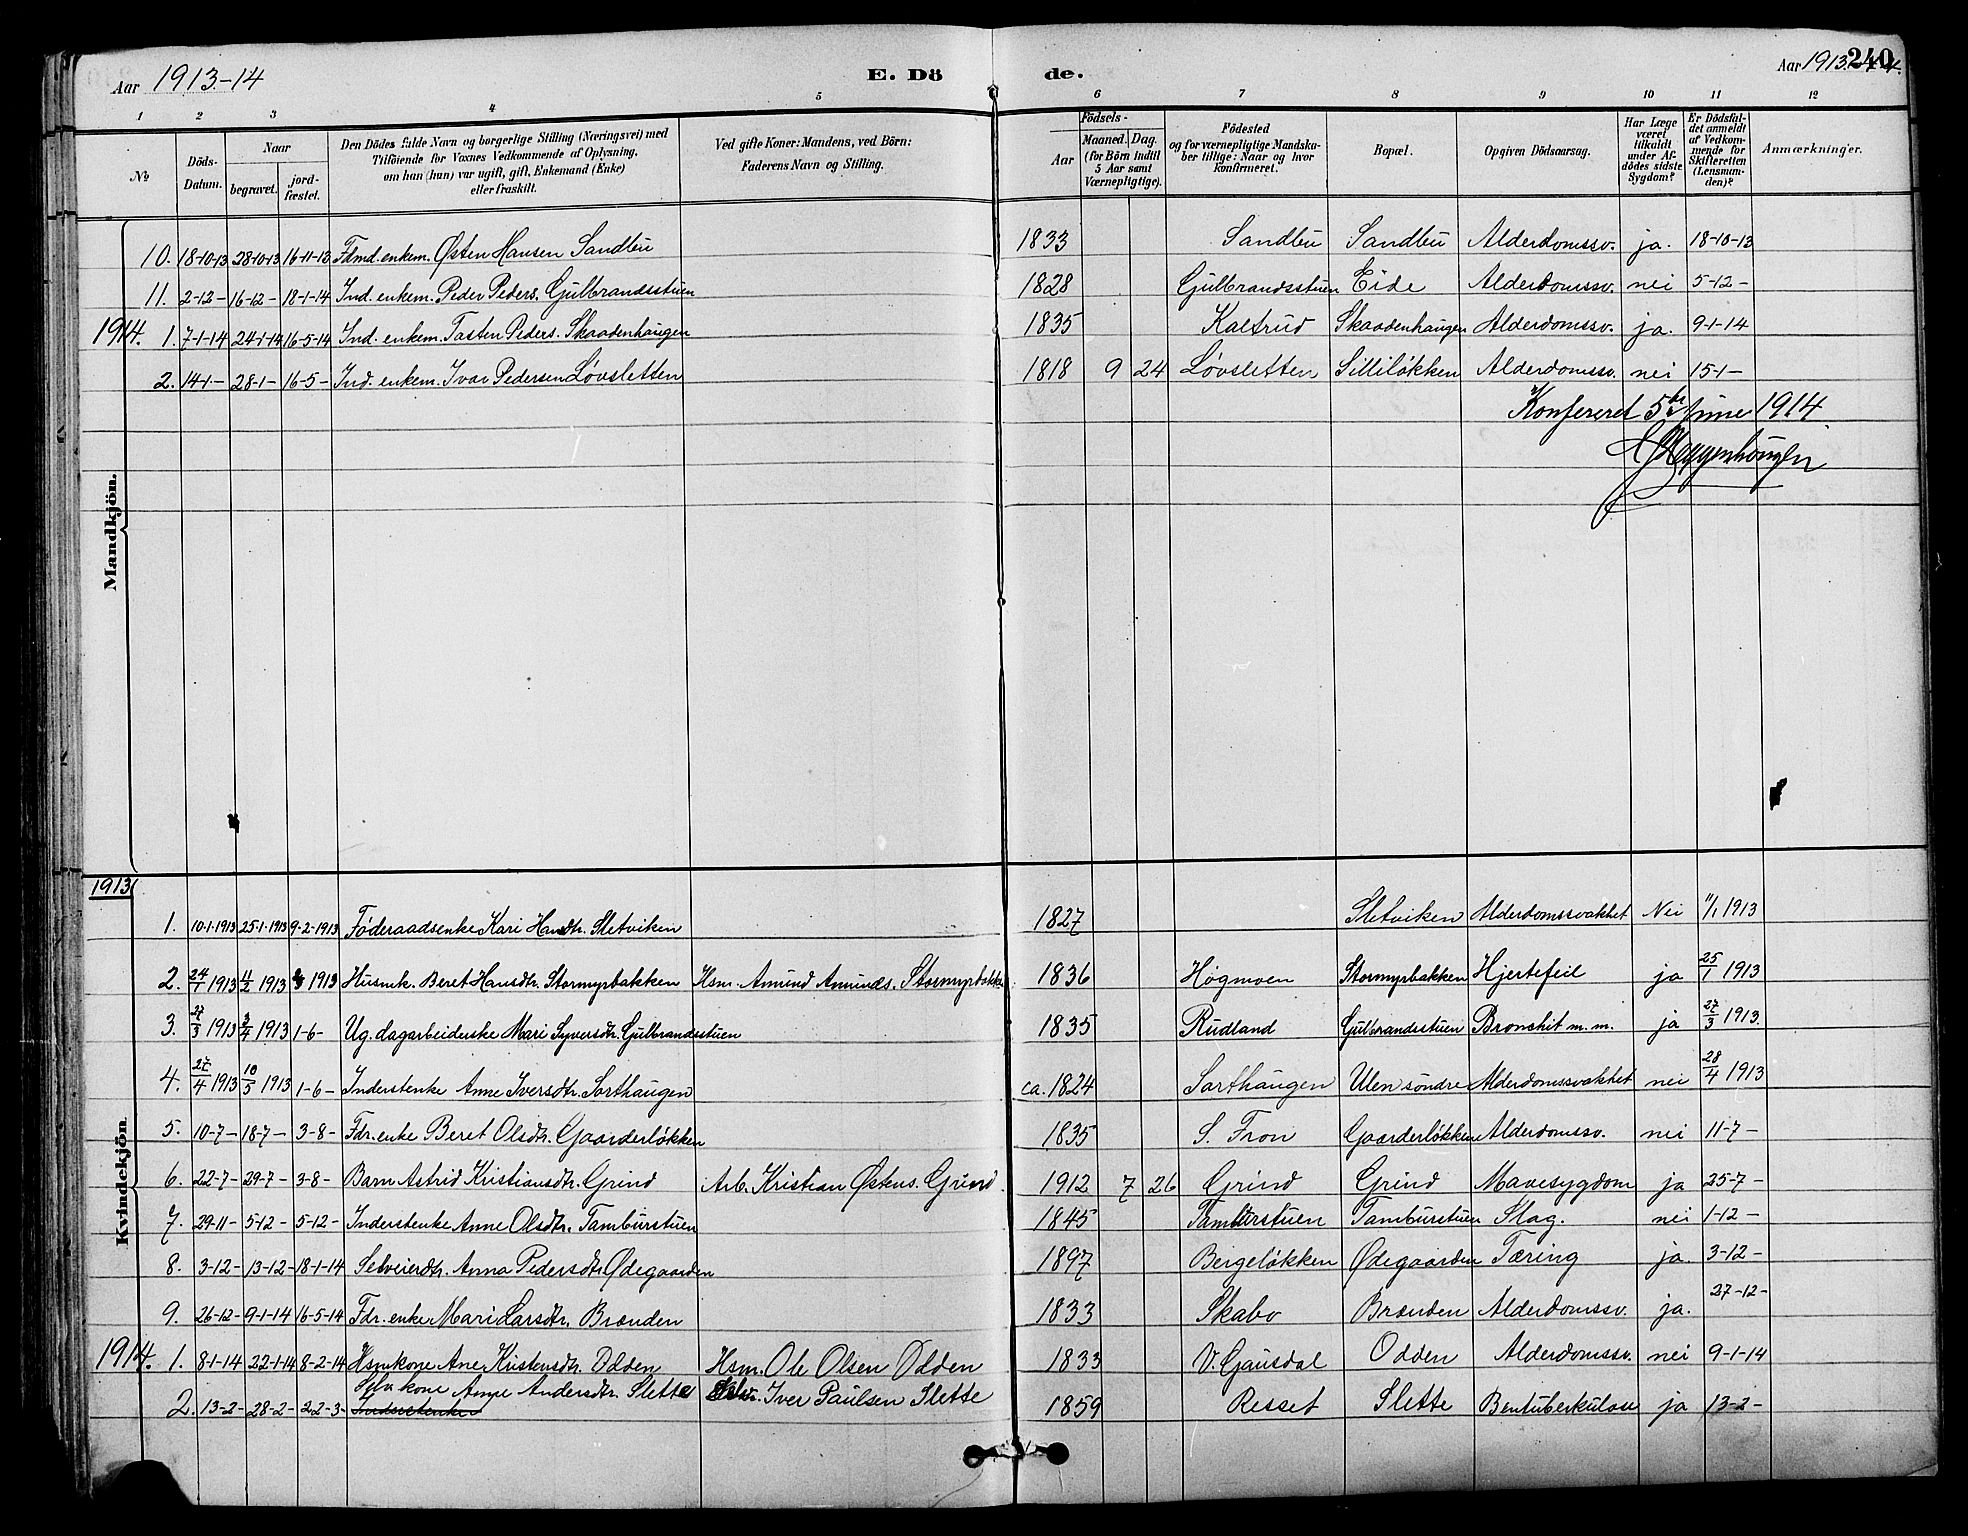 Aar 1913-14 E. Dö de. Aar 1913-14. 240
1 2 3 4 5 6 7 8 9 10 11 12
No Döds-Datum. Naar begravet. jord-fæstet. Den Dödes fulde Navn og borgerlige Stilling (Næringsvei) med Tilföiende for Voxnes Vedkommende af Oplysning, om han (hun) var ugift, gift, Enkemand (Enke) eller fraskilt. Ved gifte Koner: Mandens, ved Börn: Faderens Navn og Stilling. Födsels- Aar Maaned. Dag. (for Börn indtil 5 Aar samt Værnepligtige). Födested og for værnepligtige Mandska-ber tillige: Naar og hvor konfirmeret. Bopæl. Opgiven Dödsaarsag. Har Læge været tilkaldt under Af-dödes sidste Sygdom? Er Dödsfal-det anmeldt af Vedkom-mende for Skifteretten (Lensman-den)? Anmærkninger.
Mandkjön.
10. 18-10-13 28-10-13 16-11-13 Fdmd. enkem. Østen Hansen Sandbu 1833 Sandbu Sandbu Alderdomssv. ja. 18-10-13
11. 2-12- 16-12- 18-1-14 Ind. enkem. Peder Peders. Gulbrandsstuen 1828 Gulbrandsstuen Eide Alderdomssv. nei 5-12-
1914. 1. 7-1-14 24-1-14 16-5-14 Ind. enkem. Tasten Peders. Skaadenhaugen 1835 Kaltrud Skaadenhaugen Alderdomssv. ja. 9-1-14
2. 14-1- 28-1- 16-5- Ind. enkem. Ivar Pedersen Løvsletten 1818 9 24 Løvsletten Silliløkken Alderdomssv. nei 15-1-
Konfereret 5te June 1914
Heggenhougen
Kvindekjön.
1913
1. 10-1-1913 25-1-1913 9-2-1913 Føderaadsenke Kari Hansdtr. Sletviken 1827 Sletviken Alderdomssvakhet Nei 11/1 1913
2. 24/1 1913 11/2 1913 1913 Husmk. Beret Hansdtr. Stormyrbakken Hsm. Amund Amunds. Stormyrbakken 1836 Høgmoen Stormyrbakken Hjertefeil ja 25/1 1913
3. 27/3 1913 3/4 1913 1-6- Ug. dagarbeiderske Mari Syversdtr. Gulbrandsstuen 1835 Rudland Gulbrandsstuen Bronchit m.m. ja 27/3 1913.
4. 27/4 1913 10/5 1913 1-6- Inderstenke Anne Iversdtr. Sorthaugen ca. 1824 Sorthaugen Ulen søndre Alderdomssvakhet nei 28/4 1913
5. 10-7- 18-7- 3-8- Fdr. enke Beret Olsdtr. Gaarderløkken 1835 S. Fron Gaarderløkken Alderdomssv. nei 11-7-
6. 22-7- 29-7- 3-8- Barn Astrid Kristiansdtr. Grind Arb. Kristian Østens. Grind. 1912 7 26 Grind Grind Mavesygdom ja 25-7-
7. 29-11- 5-12- 5-12- Inderstenke Anne Olsdtr. Tamburstuen 1845 Tamburstuen Tamburstuen Slag. nei 1-12-
8. 3-12- 13-12- 18-1-14 Selveierdtr. Anna Pedersdtr. Ødegaarden 1897 Bergeløkken Ødegaarden Tæring ja. 3-12-
9. 26-12- 9-1-14 16-5-14 Fdr. enke Mari Larsdtr. Brænden 1833 Skabo Brænden Alderdomssv. ja. 27-12-
1914. 1. 8-1-14 22-1-14 8-2-14 Hsmkone Ane Kristensdtr. Odden Hsm. Ole Olsen Odden 1833 V. Gausdal Odden Alderdomssv. nei 9-1-14
2. 13-2- 28-2- 22-3- Selv kone Anne Andersdtr. Slette Inderstenke Selv. Iver Paulsen Slette 1859 Resset Slette Bentuberkulose ja 13-2-